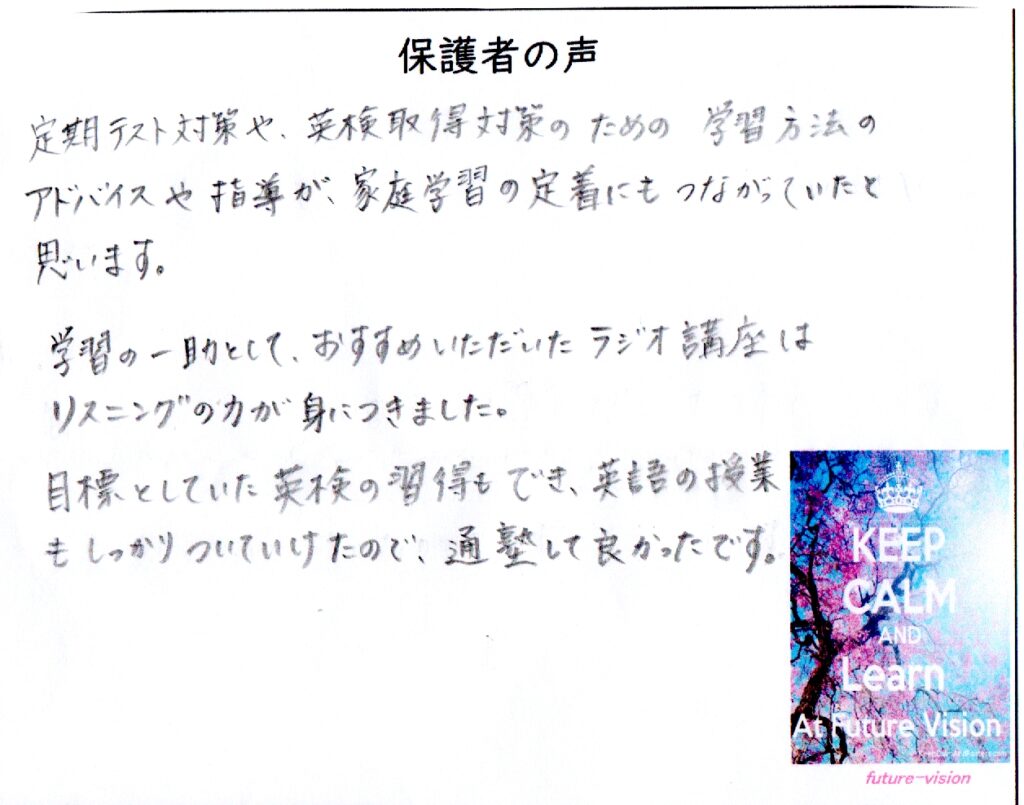 保護者の声
定期テスト対策や、英検取得対策のための 学習方法の
アドバイスや指導が、家庭学習の定着にもつながっていたと
思います。
学習の一助として、おすすめいただいたラジオ講座は
リスニングの力が身につきました。
目標としていた英検の習得もでき、英語の授業
もしっかりついていけたので、通塾して良かったです。
KEEP
CALM
AND
Learn
At Future Vision
future-vision